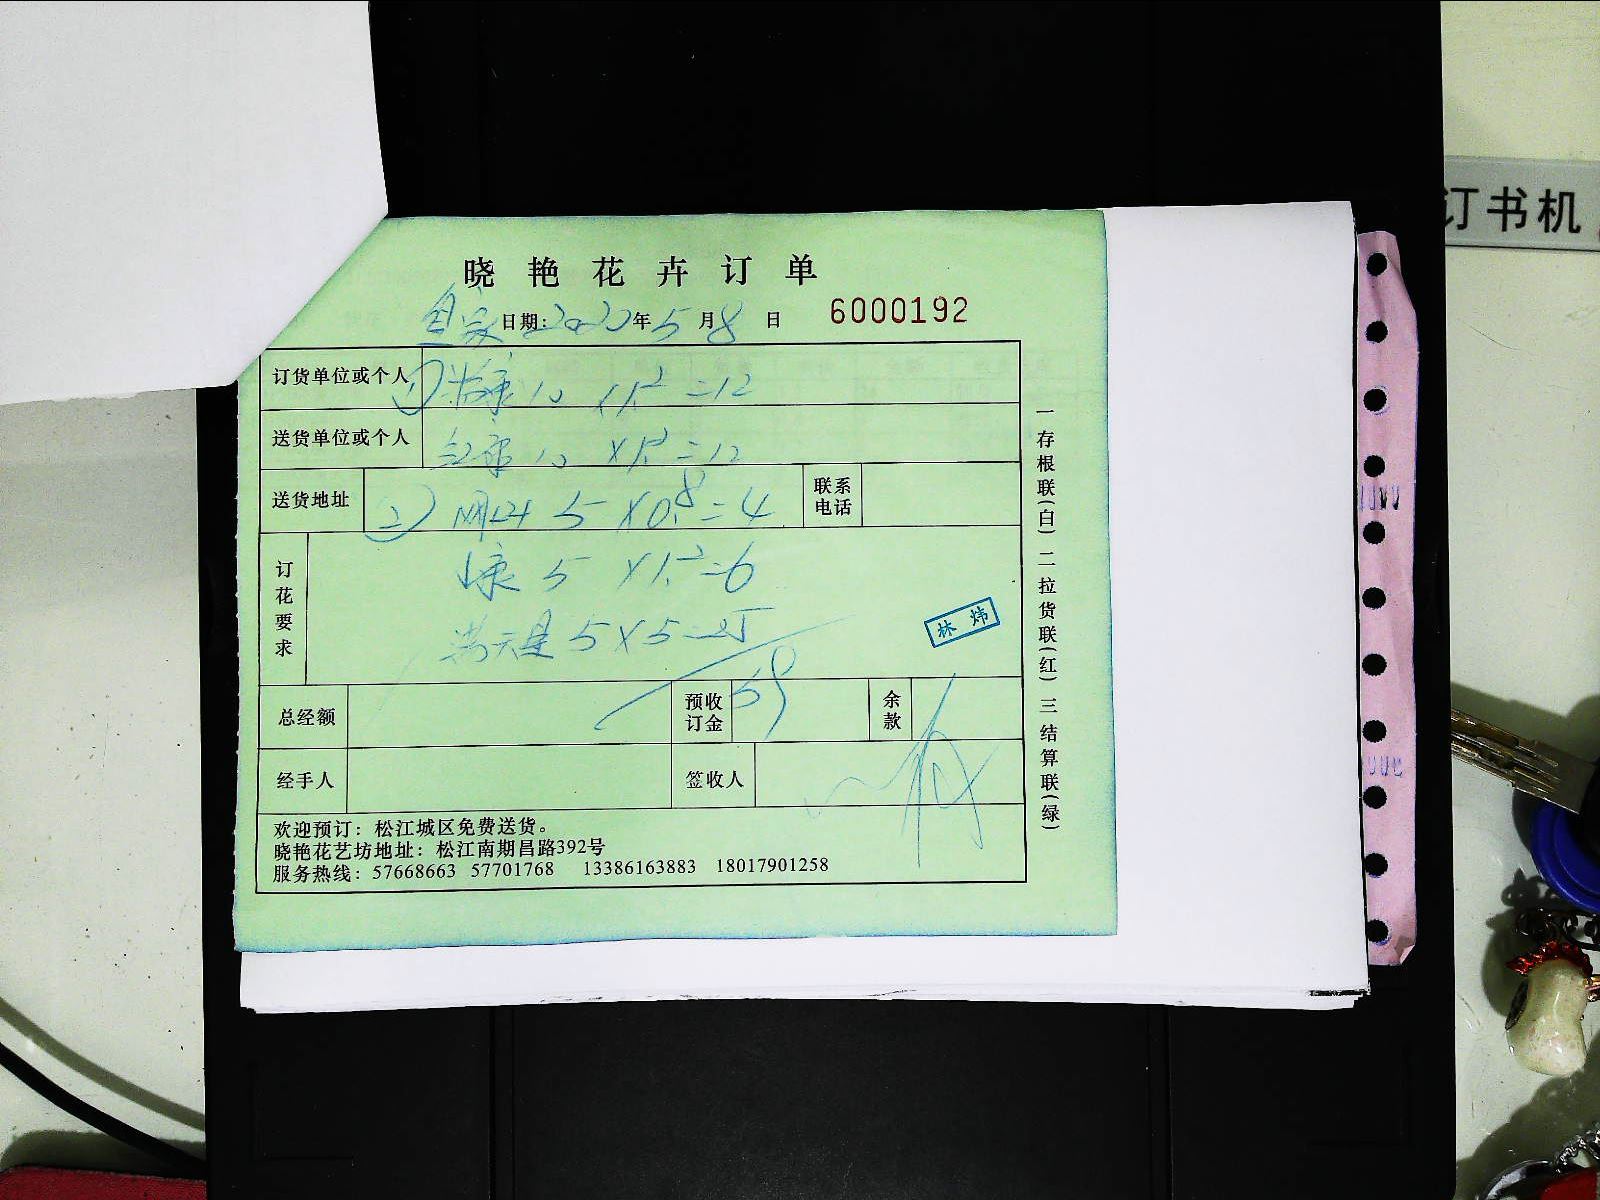 晓艳花卉订单
日期:2020年5月8日 6000192
订货单位或个人 ① 10 ×1.2=12
送货单位或个人 10 ×1.2=12
送货地址 ② 5 ×0.8=4 联系电话
订花要求 康 5 ×1.2=6
满天星 5×5=25
林炜
59
总经额 预收订金 余款
经手人 签收人
欢迎预订:松江城区免费送货。
晓艳花艺坊地址:松江南期昌路392号
服务热线:57668663 57701768 13386163883 18017901258
一存根联(白)二拉货联(红)三结算联(绿)
订书机